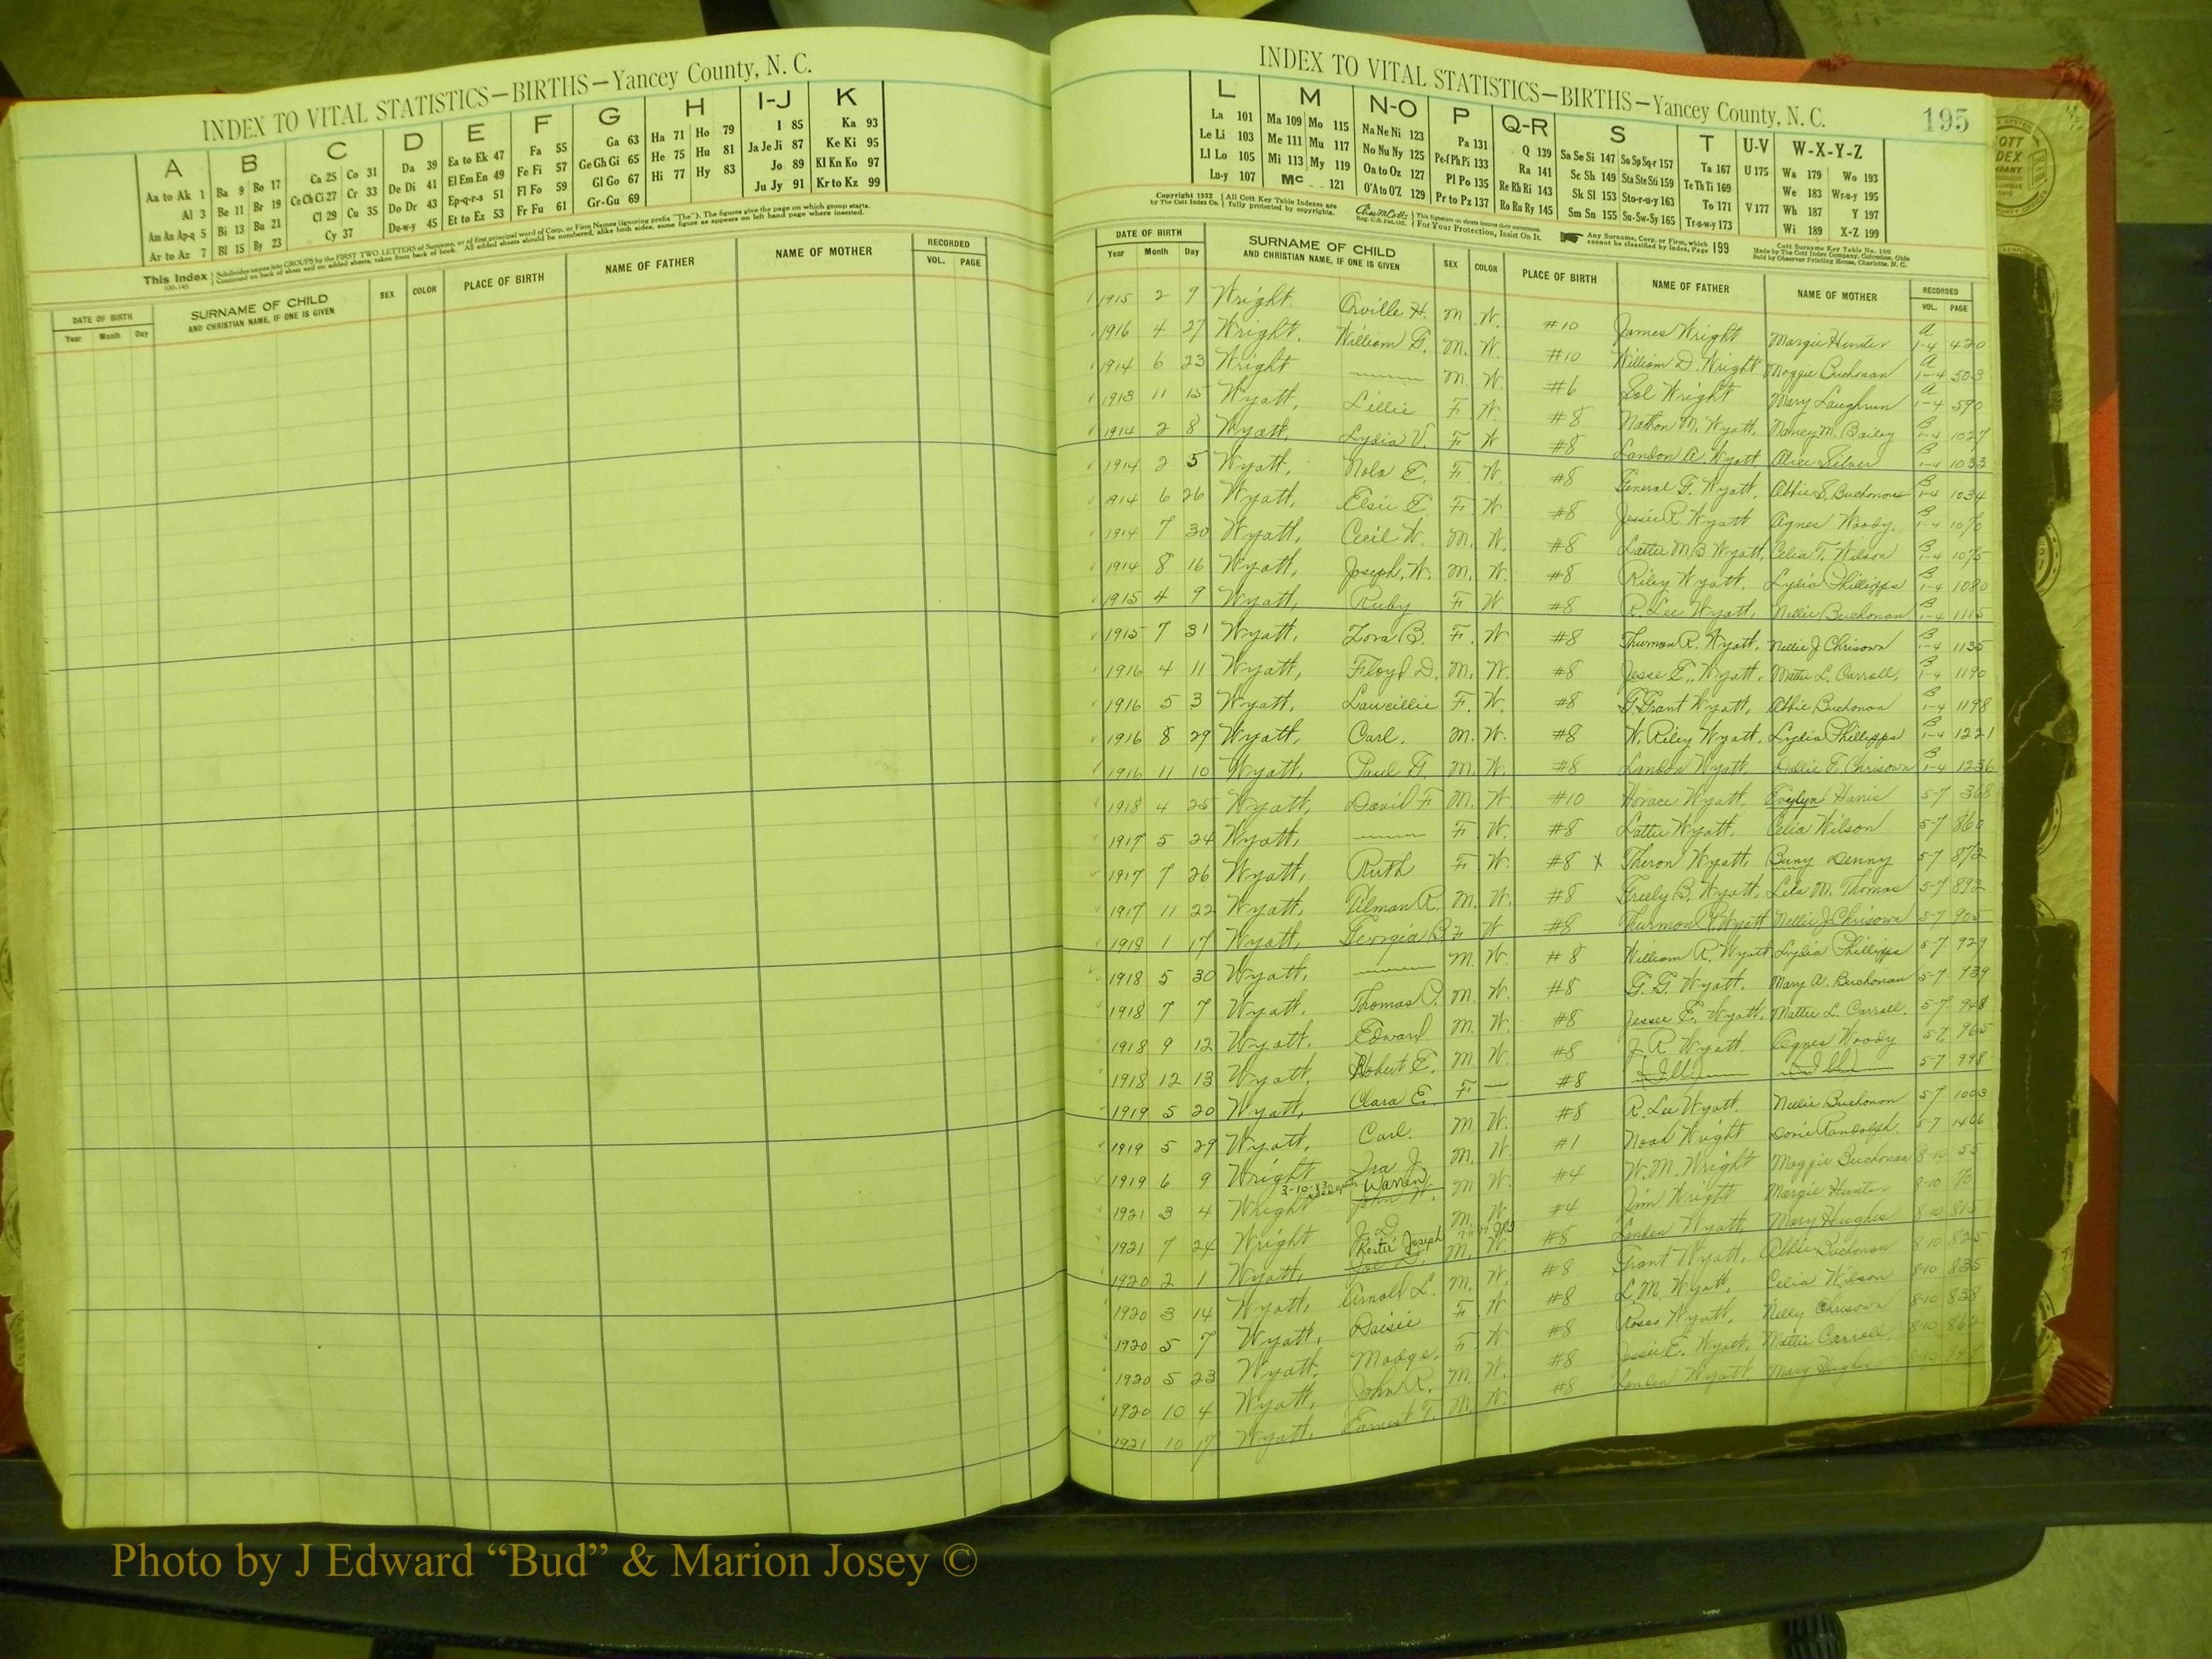 INDEX TO VITAL STATISTICS—BIRTHS—Yancey County, N. C.
A B C D E F G H I-J K
Aa to Ak 1 Ba 9 Bo 17 Ca 25 Co 31 Da 39 Ea to Ek 47 Fa 55 Ga 63 Ha 71 Ho 79 I 85 Ka 93
Al 3 Be 11 Br 19 Ce Ch Ci 27 Cr 33 De Di 41 El Em En 49 Fe Fi 57 Ge Gh Gi 65 He 75 Hu 81 Ja Je Ji 87 Ke Ki 95
Am An Ap-q 5 Bi 13 Bu 21 Cl 29 Cu 35 Do Dr 43 Ep-q-r-s 51 Fl Fo 59 Gl Go 67 Hi 77 Hy 83 Jo 89 Kl Kn Ko 97
Ar to Az 7 Bl 15 By 23 Cy 37 Du-w-y 45 Et to Ez 53 Fr Fu 61 Gr-Gu 69 Ju Jy 91 Kr to Kz 99
This Index Subdivides names into GROUPS by the FIRST TWO LETTERS of Surname, or of first principal word of Corp. or Firm Names (ignoring prefix "The"). The figures give the page on which group starts.
Continued on back of sheet and on added sheets, taken from back of book. All added sheets should be numbered, alike both sides, same figure as appears on left hand page where inserted.
DATE OF BIRTH SURNAME OF CHILD AND CHRISTIAN NAME, IF ONE IS GIVEN SEX COLOR PLACE OF BIRTH NAME OF FATHER NAME OF MOTHER RECORDED
Year Month Day VOL. PAGE
INDEX TO VITAL STATISTICS—BIRTHS—Yancey County, N. C. 195
L M N-O P Q-R S T U-V W-X-Y-Z
La 101 Ma 109 Mo 115 Na Ne Ni 123 Pa 131 Q 139 Sa Se Si 147 So Sp Sq-r 157 Ta 167 U 175 Wa 179 Wo 193
Le Li 103 Me 111 Mu 117 No Nu Ny 125 Pe-f Ph Pi 133 Ra 141 Sc Sh 149 Sta Ste Sti 159 Te Th Ti 169 We 183 Wr-u-y 195
Ll Lo 105 Mi 113 My 119 Oa to Oz 127 Pl Po 135 Re Rh Ri 143 Sk Sl 153 Sto-r-u-y 163 To 171 V 177 Wh 187 Y 197
Lu-y 107 Mc 121 O'A to O'Z 129 Pr to Pz 137 Ro Ru Ry 145 Sm Sn 155 Su-Sw-Sy 165 Tr-u-w-y 173 Wi 189 X-Z 199
Copyright 1932 by The Cott Index Co. All Cott Key Table Indexes are fully protected by copyrights. For Your Protection, Insist On It. Any Surname, Corp. or Firm, which cannot be classified by Index, Page 199
Cott Surname Key Table No. 100 Made by The Cott Index Company, Columbus, Ohio Sold by Observer Printing House, Charlotte, N. C.
DATE OF BIRTH SURNAME OF CHILD AND CHRISTIAN NAME, IF ONE IS GIVEN SEX COLOR PLACE OF BIRTH NAME OF FATHER NAME OF MOTHER RECORDED
Year Month Day VOL. PAGE
1915 2 9 Wright Orville H. M. W. #10 James Wright Margie Hunter A 1-4 420
1916 4 27 Wright. William G. M. W. #10 William D. Wright Maggie Buchanan A 1-4 503
1914 6 23 Wright M. W. #6 Sol Wright Mary Laughrun A 1-4 590
1913 11 15 Wyatt, Lillie F. W. #8 Nathan M. Wyatt, Nancy M. Bailey B 1-4 1027
1914 2 8 Wyatt, Lydia V. F W #8 Landon A. Wyatt Alice Silver B 1-4 1033
1914 2 5 Wyatt, Nola E. F. W. #8 General G. Wyatt, Abbie S. Buchanan B 1-4 1034
1914 6 26 Wyatt, Elsie E. F. W #8 Jessie R. Wyatt Agnes Woody. B 1-4 1070
1914 7 30 Wyatt, Cecil W. M. W. #8 Lattie M B Wyatt, Celia T. Wilson B 1-4 1075
1914 8 16 Wyatt, Joseph. W. M. W. #8 Riley Wyatt. Lydia Phillipps B 1-4 1080
1915 4 9 Wyatt, Ruby F W. #8 R. Lee Wyatt, Nellie Buchanan B 1-4 1115
1915 7 31 Wyatt, Zora B. F. W #8 Thurman R. Wyatt. Nellie J Chrisown B 1-4 1135
1916 4 11 Wyatt, Floyd D. M. W. #8 Jesse E. Wyatt, Mattie L. Carroll, B 1-4 1190
1916 5 3 Wyatt, Laucillie F. W. #8 G. Grant Wyatt, Abbie Buchanan B 1-4 1198
1916 8 29 Wyatt, Carl. M. W. #8 W. Riley Wyatt. Lydia Phillipps B 1-4 1221
1916 11 10 Wyatt, Paul G. M. W. #8 Landon Wyatt. Dollie E. Chrisown B 1-4 1236
1918 4 25 Wyatt, David F M. W #10 Horace Wyatt. Evelyn Haris 5-7 368
1917 5 24 Wyatt, F. W. #8 Lattie Wyatt. Celia Wilson 5-7 860
1917 7 26 Wyatt, Ruth F W. #8 x Theron Wyatt, Buny Denny 5-7 872
1917 11 22 Wyatt, Tilman R. M. W. #8 Greely B. Wyatt, Lela M. Thomas 5-7 892
1918 1 17 Wyatt, Georgia B F W #8 Thurmon R Wyatt Nellie J Chrisown 5-7 905
1918 5 30 Wyatt, M. W. #8 William R. Wyatt Lydia Phillipps 5-7 929
1918 7 7 Wyatt. Thomas P. M. W. #8 G. G. Wyatt. Mary A. Buchanan 5-7 939
1918 9 12 Wyatt. Edward M. W. #8 Jessee E. Wyatt, Mattie L. Carroll. 5-7 948
1918 12 13 Wyatt, Robert E. M W. #8 J R Wyatt. Agnes Woody 5-7 965
1919 5 20 Wyatt, Clara E. F — #8 5-7 998
1919 5 29 Wyatt, Carl. M W. #8 R. Lee Wyatt. Nellie Buchanan 5-7 1003
1919 6 9 Wright Ira J M. W. #1 Noah Wright Dovie Randolph. 5-7 1466
1921 3 4 Wright Warren John W. M W. #4 W. M. Wright Maggie Buchanan 8-10 55
1921 7 24 Wright J. D. M. W. #4 Jim Wright Margie Hunter 8-10 70
1920 2 1 Wyatt, Kester Joseph Joe L. M. W. #8 Linden Wyatt Mary Hughes 8-10 815
1920 3 14 Wyatt, Arnold L. M. W. #8 Grant Wyatt. Abbie Buchanan 8-10 825
1920 5 7 Wyatt, Daisie F. W #8 L. M. Wyatt, Celia Wilson 8-10 835
1920 5 23 Wyatt, Madge, F. W. #8 Roses Wyatt, Nelly Chrisown 8-10 838
1920 10 4 Wyatt, John R. M. W. #8 Jessie E. Wyatt, Mattie Carroll, 8-10 862
1921 10 17 Wyatt, Earnest T. M. W. #8 Linden Wyatt Mary Hughes 8-10
Photo by J Edward “Bud” & Marion Josey ©